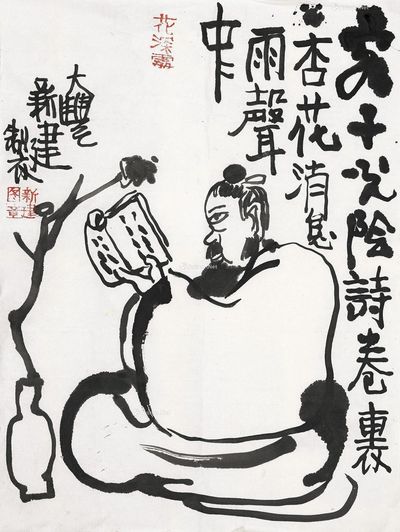 客子光陰詩卷裏
杏花消息
雨聲
中
花深處
大豐
新建
製
新建
圖章